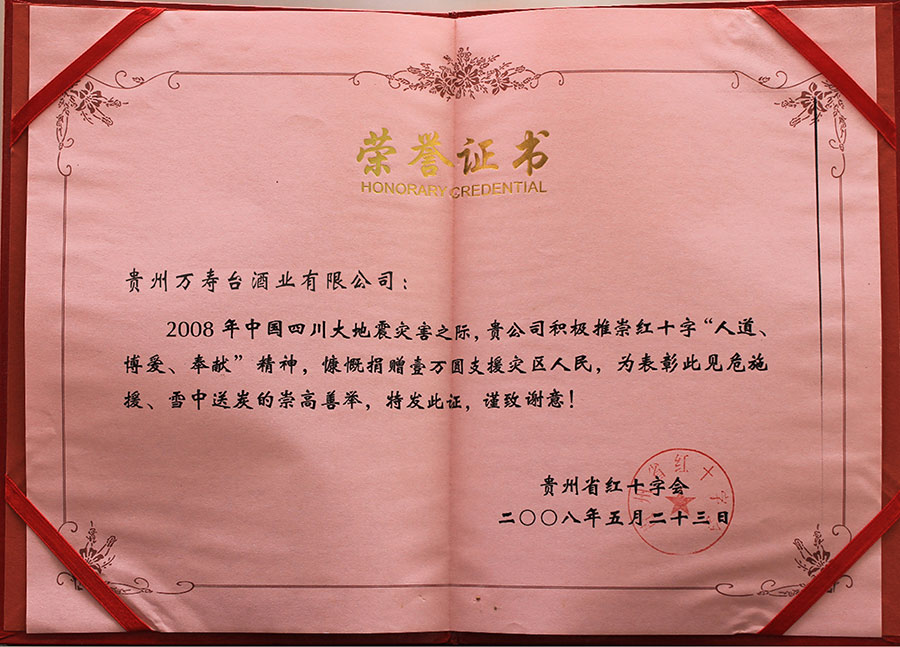 荣誉证书
HONORARY CREDENTIAL
贵州万寿台酒业有限公司：
2008年中国四川大地震灾害之际，贵公司积极推崇红十字“人道、
博爱、奉献”精神，慷慨捐赠壹万圆支援灾区人民，为表彰此见危施
援、雪中送炭的崇高善举，特发此证，谨致谢意！
贵州省红十字会
二〇〇八年五月二十三日